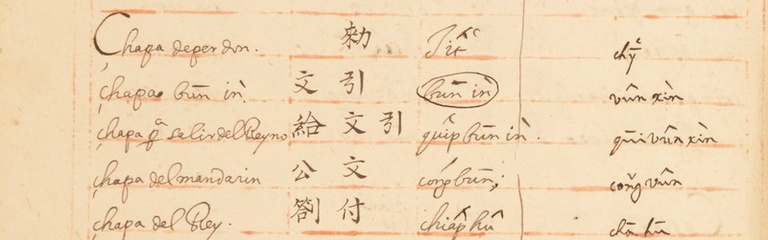 Chapa de perdon. 勑 Tit chỹ
chapa būn ìn. 文引 būn ìn vûn xìn
chapa q̃ salir del Reyno 給文引 quip būn ìn. qūi vûn xìn
chapa del mandarin 公文 cong bûn; coñg vûn
chapa del Rey. 劄付 chiap hû chā hū